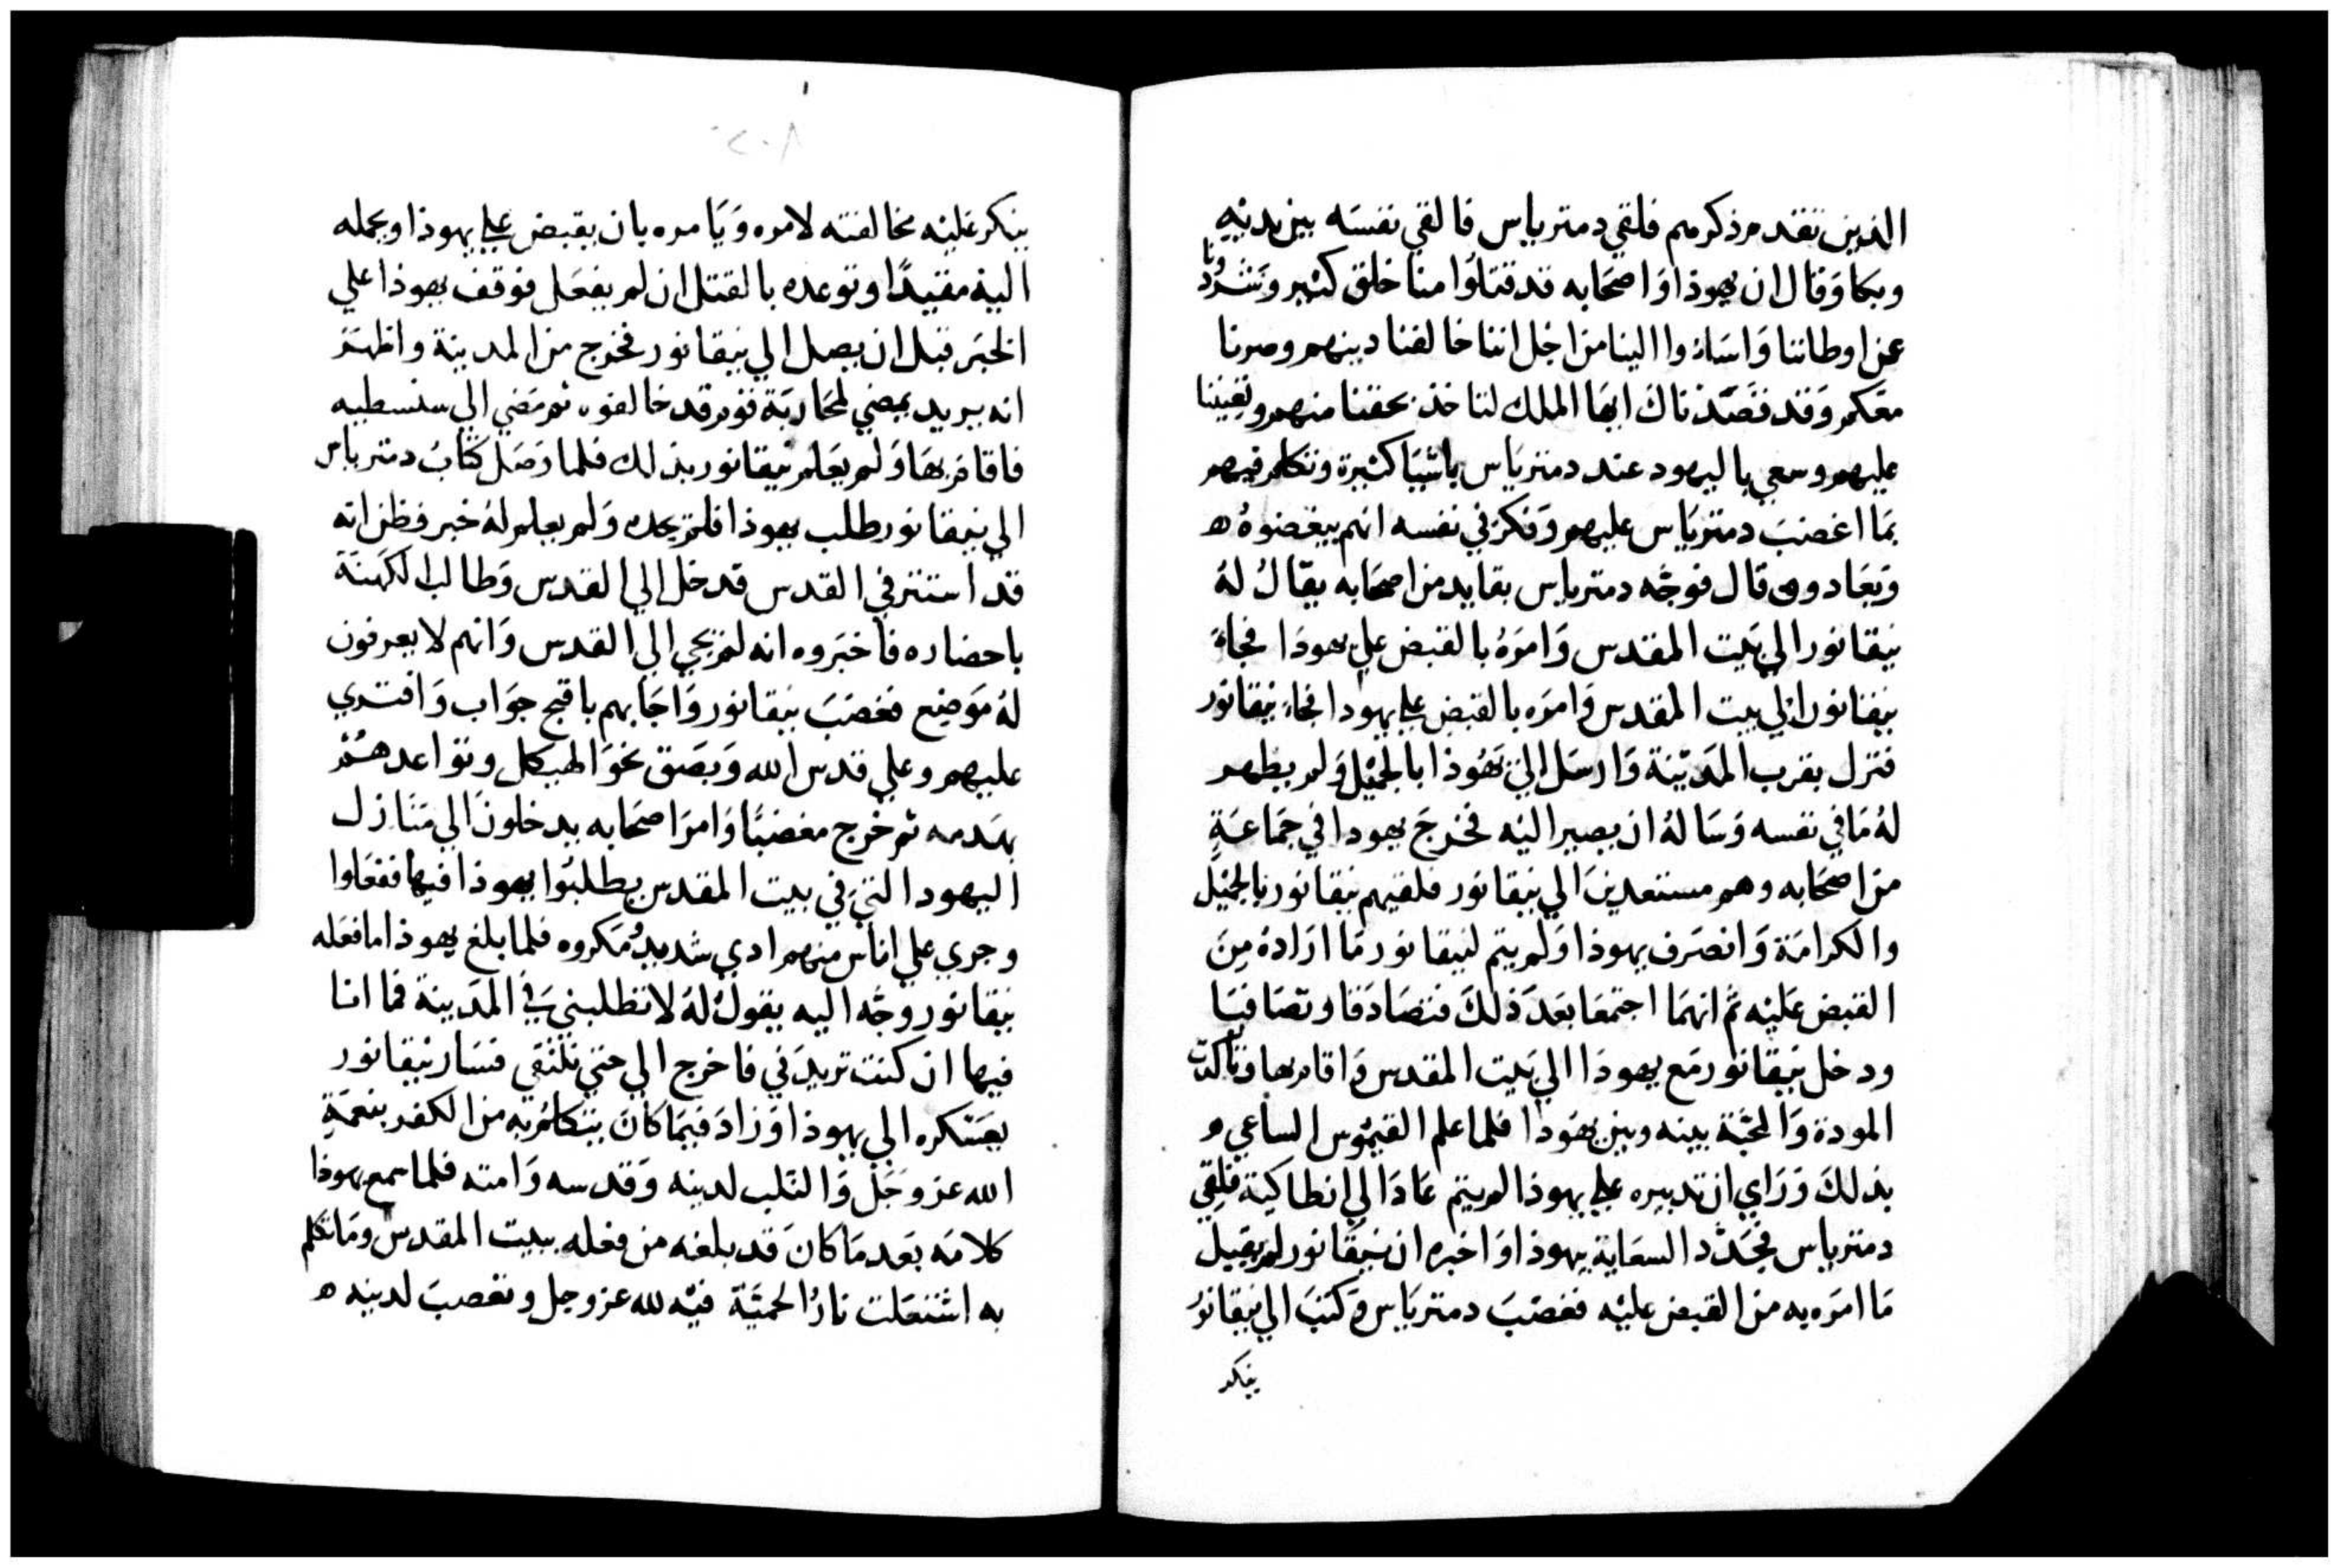 الذين تقدم ذكرهم فلقي دمترياس فالقي نفسَه بين يديْهِ
وبكا وَقال ان يهوذا وَاصحَابه قد قتلوُا منا خلق كثير وَشرّدُونا
عن اوطاننا وَاسَاءُوا الينا من اجْل اننا خالفنا دينهم وصرنا
معَكم وَقد قصَدْناكَ ايهَا الملك لتاخذ بحقنا منهم وتعِيننا
عليهم وسعي باليهود عند دمتريَاس باشيَا كثيرة وتكلم فيهم
بمَا اغضبَ دمتريَاس عليهم وَفكرَ في نفسه انهم يبغضوهُ ه
وَيعَادوه قال فوجّه دمترياس بقايد من اصحَابه يقال لهُ
نيقانور الي بَيت المقدس وَامرَهُ بالقبض علي يهودَا فجاءَ
نيقانور الي بيت المقدس وَامرَه بالقبض علي يهودا فجاءَ نيقانور
فنزل بقرب المَديْنة وَارسَل الي يَهُوذا بالجميْل وَلم يظهر
لهُ مَا في نفسه وَسَالهُ ان يصير اليْه فخرجَ يهودا في جمَاعَةٍ
من اصحَابه وهم مستعدينَ الي نيقانور فلقيهم نيقانور بالجميْل
والكرامَة وَانصَرف يهوذا وَلم يتم لنيقانور مَا ارَادهُ مِنَ
القبض عَليْه ثم انهمَا اجتمعَا بعَد ذلكَ فتصَادَقا وتصَافيَا
ودخل نيقانور مَع يهودَا الي بَيت المقدس وَاقام بها وتأكدت
المودة وَالمحبّة بينه وبين يهُودا فلما علم القيمُوس الساعي ه
بذلكَ وَرَاي ان تدبيره علي يهوذا لم يتم عَادَ الي انطاكية فلقِي
دمترياس فجَدّد السعَاية بيهوذا وَاخبره ان نيقانور لم يقبل
مَا امرَه به من القبض عليْه فغضبَ دمتريَاس وَكتبَ الي نيقانور
ينكر
٢٠٨
ينكر عليْه مخالفته لامره وَيَامره بان يقبض علي يهوذا ويحمله
اليْه مقيدًا وتوعده بالقتل ان لم يفعَل فوقف يهوذا علي
الخبرَ قبل ان يصل الي نيقانور فخرج من المدينة واظهرَ
انه يريد يمضي لمحَاربَة قوم قد خالفوه ثم مَضي الي سنسطيه
فاقام بهَا وَلم يعَلم نيقانور بذلك فلما وَصَل كتابُ دمترياس
الي نيقانور طلب يهوذا فلم يجده وَلم يعلم لهُ خبر فظن انه
قد استتر في القدس فدخل الي القدس وَطالب الكَهنَة
باحضاره فأخبَروه انه لم يجي الي القدس وَانهم لا يعرفون
لهُ مَوضِع فغضبَ نيقانور وَاجَابهم باقبح جوَاب وَافتري
عليهم وعلي قدس الله وَبصَق نحَو الهيكل وتواعدهُمْ
بهَدمه ثم خرج مغضبًا وَامرَ اصحَابه يدخلونَ الي مَنَازل
اليهود التيَ في بيت المقدس يطلبُوا يهوذا فيها ففعَلوا
وجري علي اناس منهم ادي شديدُ مَكروه فلما بلغ يهوذا ما فعَله
نيقانور وجّه اليه يقولُ لهُ لا تطلبني في المَدينة فما انا
فيها ان كنت تريدَني فاخرج الي حتي نلتقي فسَار نيقانور
بعَسْكره الي يهوذا وَزادَ فيمَا كانَ يتكلمُ به من الكفر بنعمَةِ
الله عز وجَل وَالثلب لدينه وَقدسه وَامته فلما سمع يهوذا
كلامَه بعَد مَا كانَ قد بلغه من فعله ببيت المقدس ومَا تكلم
به اشتعَلت نارُ الحميّة فيْه لله عز وجل وتعصبَ لدينه ه